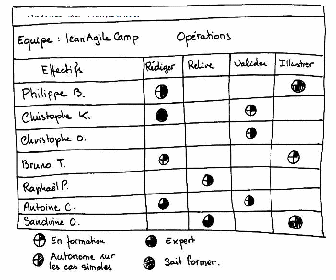 Equipe : LeanAgileCamp Opérations
Effectifs Rédiger Relire Valider Illustrer
Philippe B.
Christophe K.
Christophe O.
Bruno T.
Raphaël P.
Antoine C.
Sandrine C.
En formation Expert
Autonome sur les cas simples Sait former.